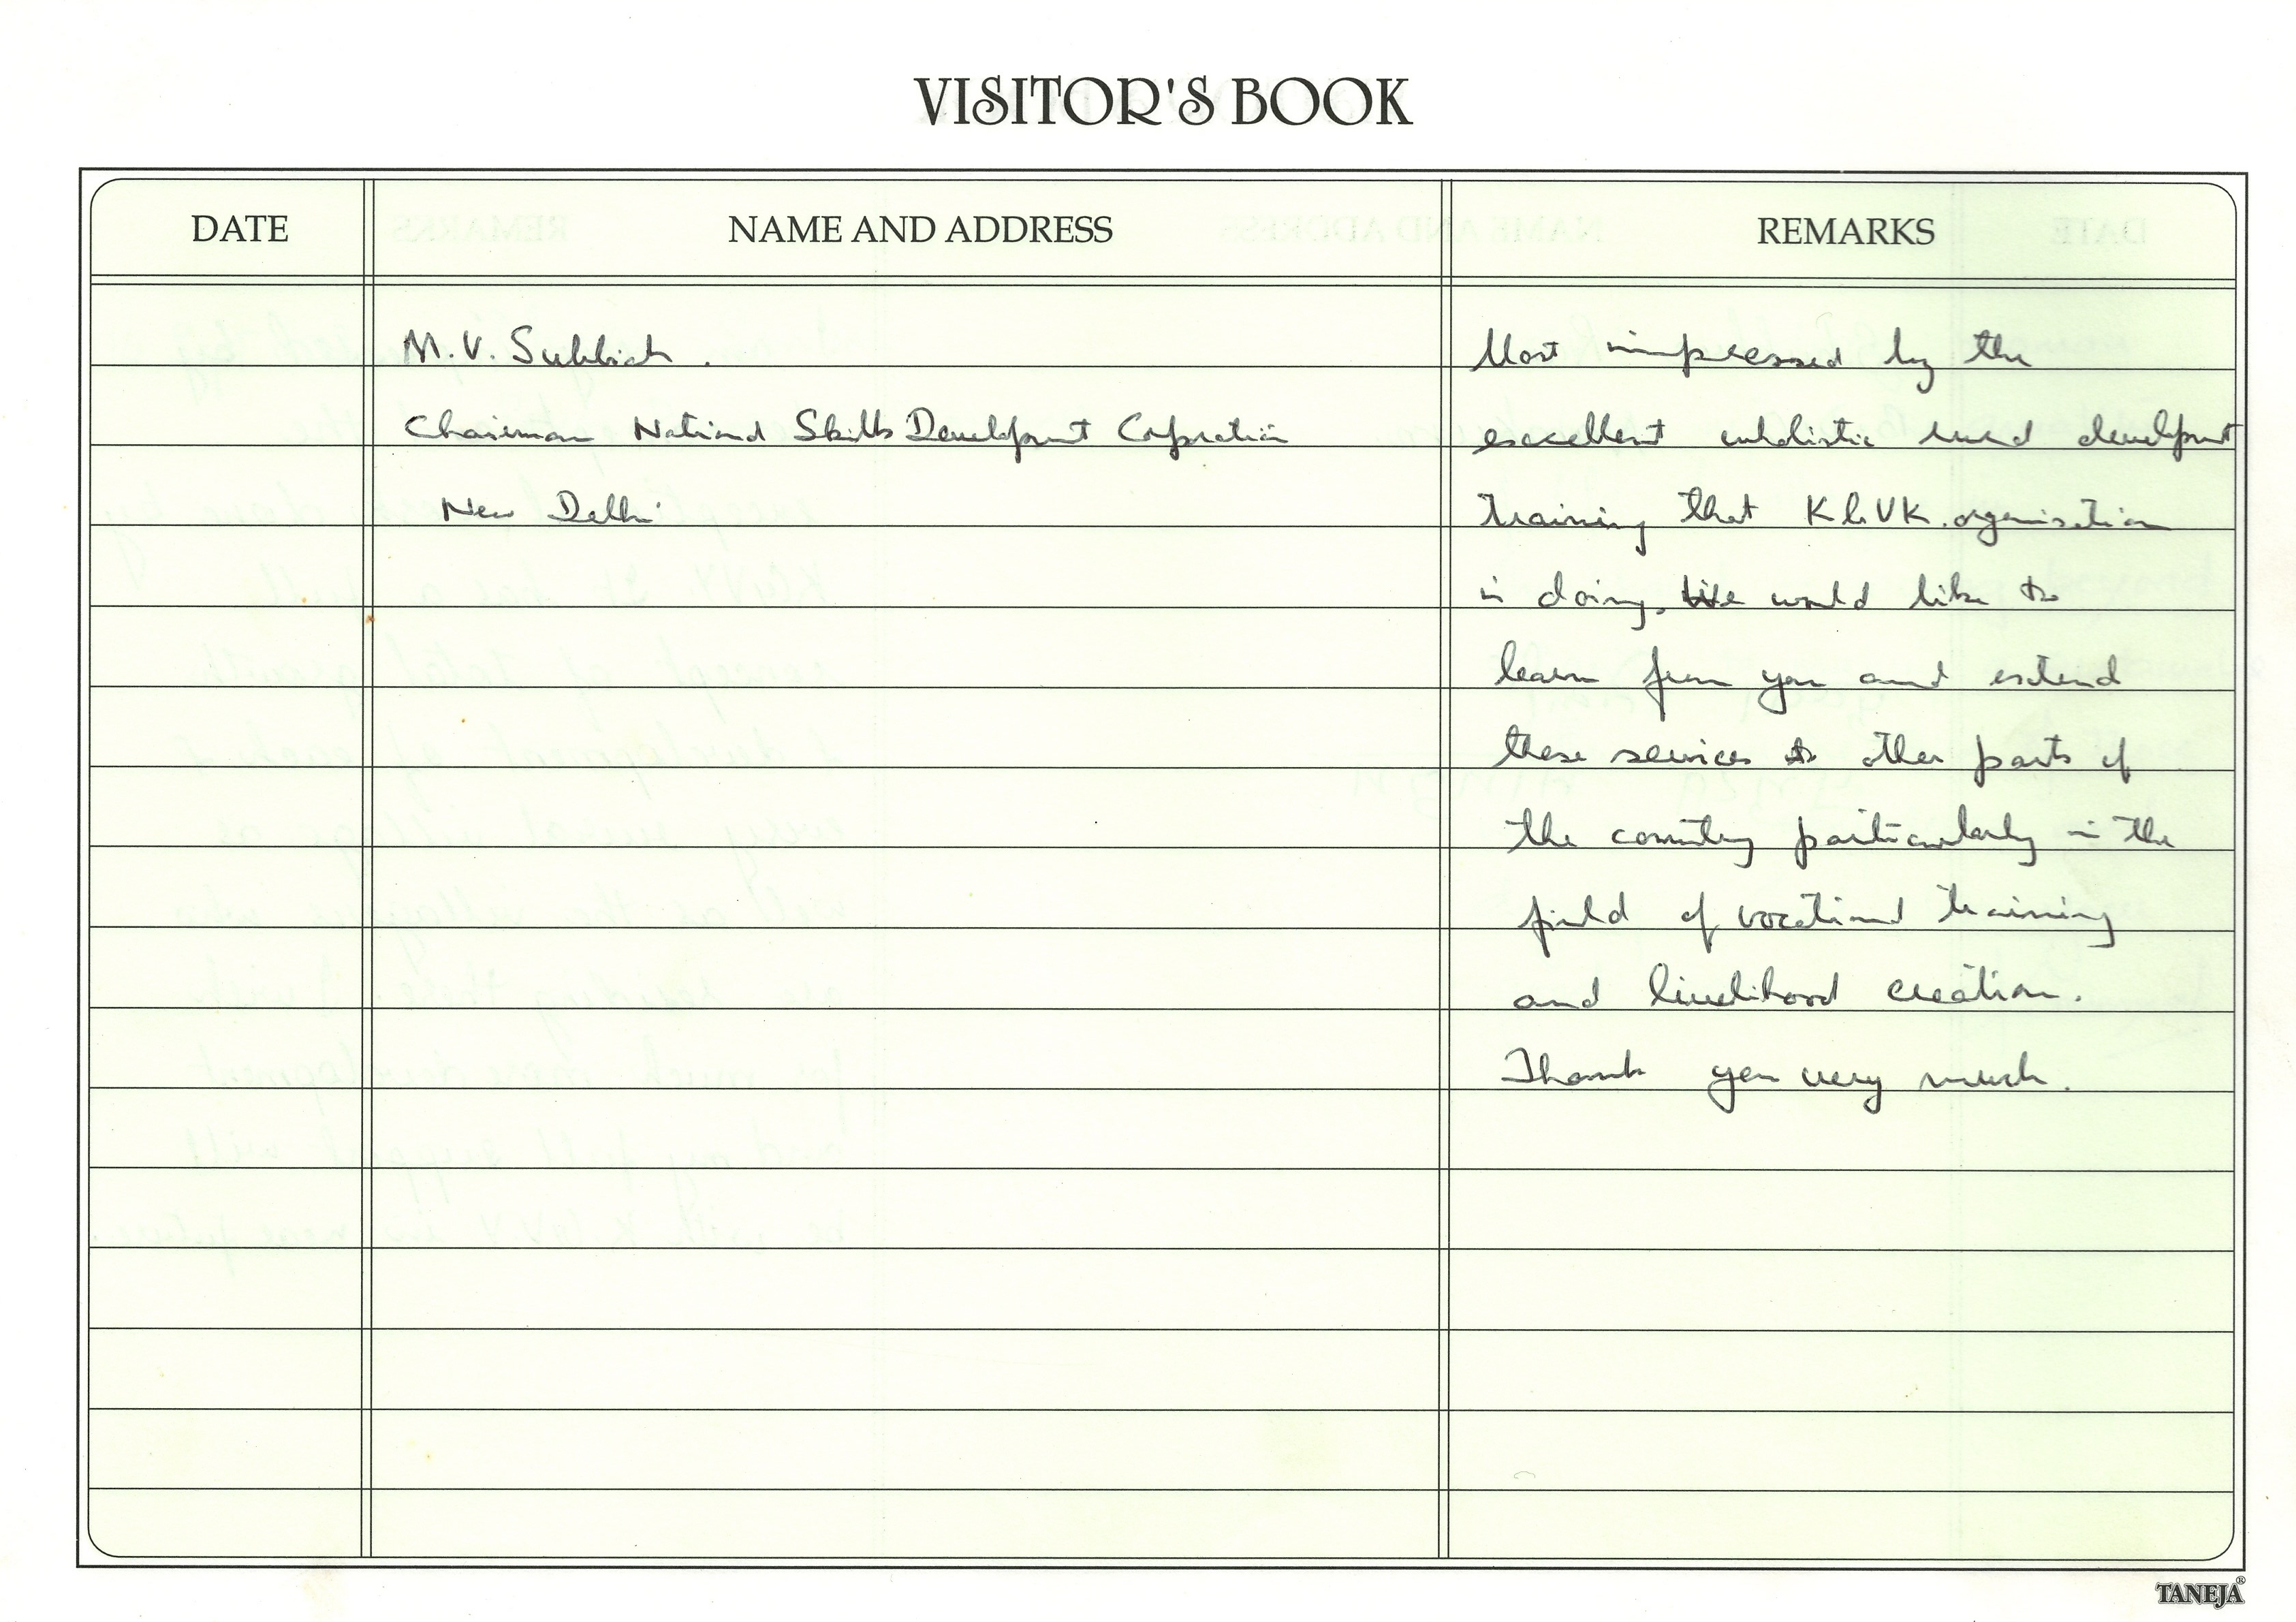 VISITOR'S BOOK
DATE NAME AND ADDRESS REMARKS
M.V. Subbiah.
Chairman National Skills Development Corporation
New Delhi
Most impressed by the
excellent wholistic rural development
training that organisation
is doing. We would like to
learn from you and extend
these services to other parts of
the country particularly in the
field of vocational training
and livelihood creation.
Thank you very much.
TANEJA®